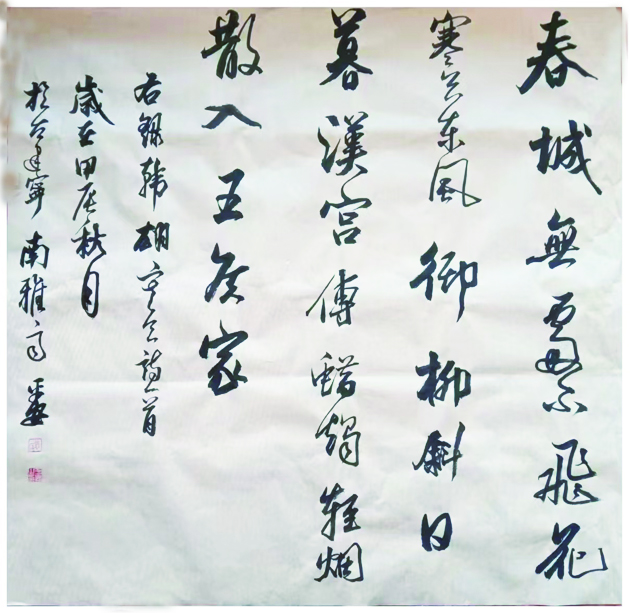 春城無處不飛花
寒食东風御柳斜日
暮漢宮傳蜡燭輕烟
散入五侯家
右錄韩翃寒食詩一首
歲在甲辰秋月
於古建寧南雅高